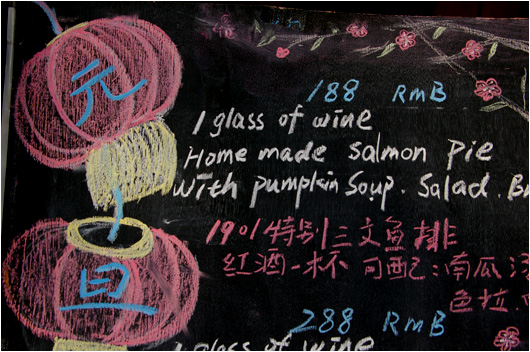 元旦
188 RmB
1 glass of wine
Home made salmon pie
with pumpkin soup. Salad.
1901特别三文鱼排
红酒一杯 可配:南瓜
色拉.
288 RmB
glass of wine